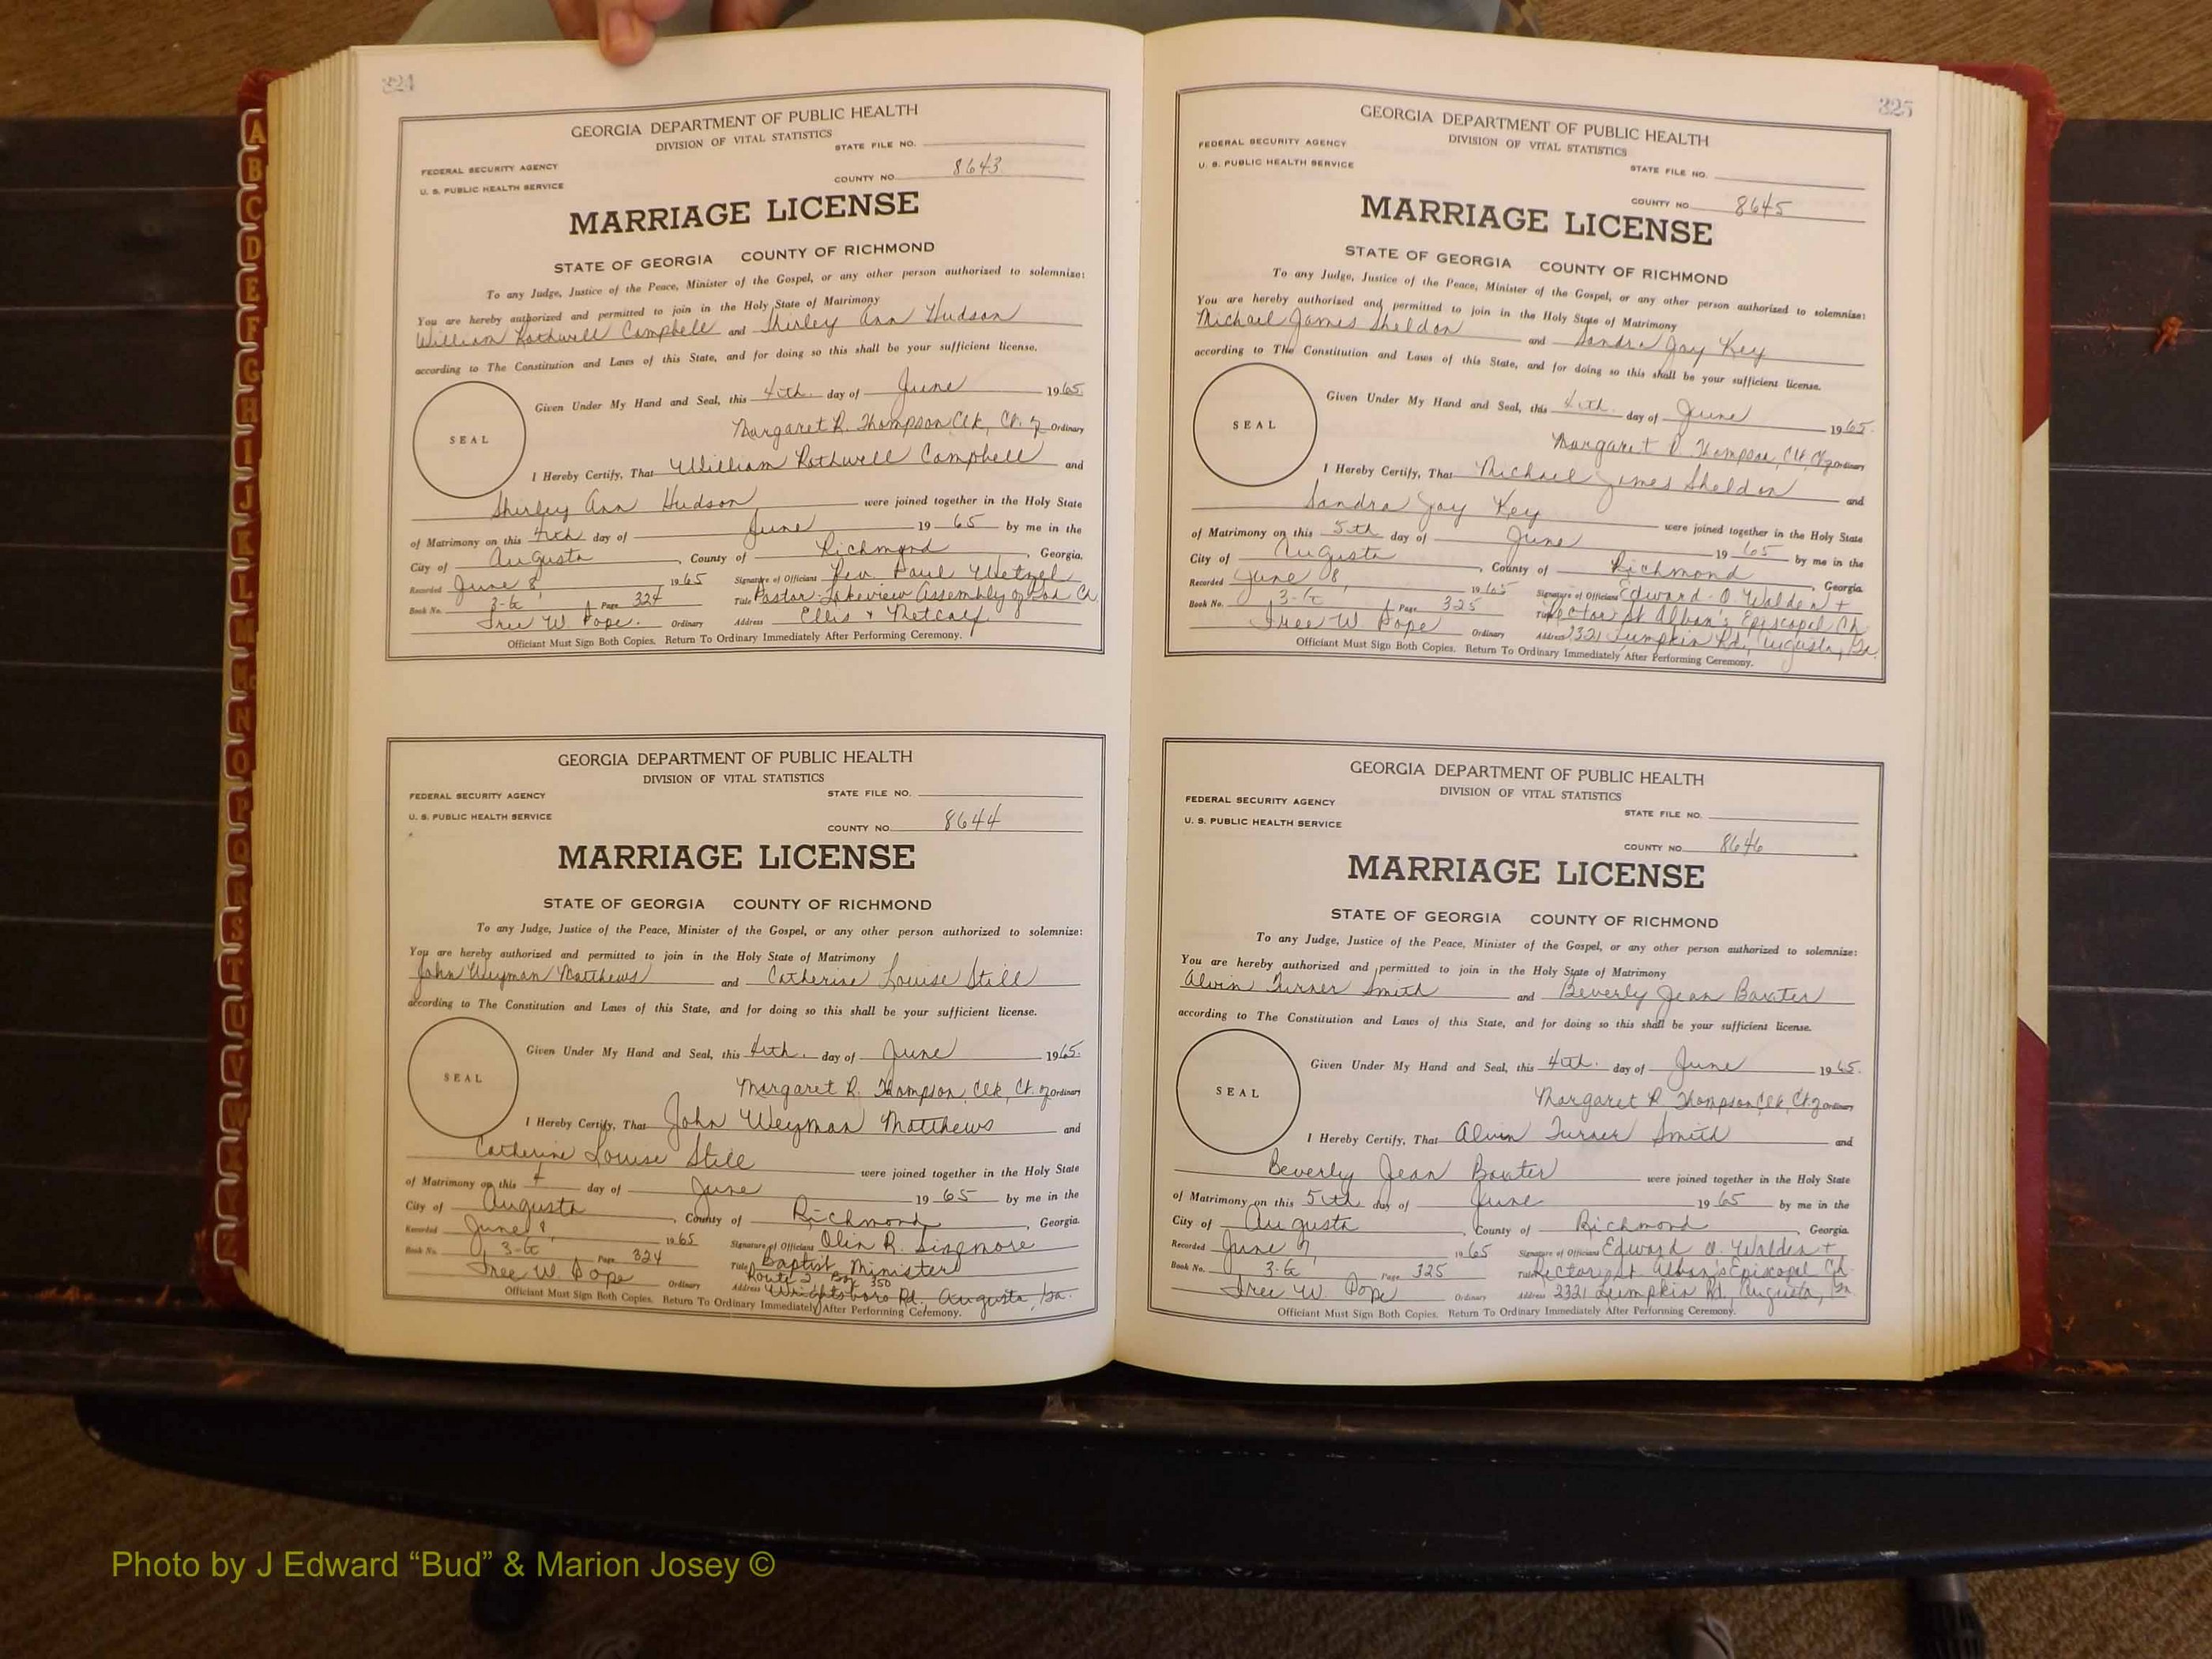 324
GEORGIA DEPARTMENT OF PUBLIC HEALTH
DIVISION OF VITAL STATISTICS
STATE FILE NO.
FEDERAL SECURITY AGENCY
U. S. PUBLIC HEALTH SERVICE
COUNTY NO. 8643
MARRIAGE LICENSE
STATE OF GEORGIA COUNTY OF RICHMOND
To any Judge, Justice of the Peace, Minister of the Gospel, or any other person authorized to solemnize:
You are hereby authorized and permitted to join in the Holy State of Matrimony
William Rothwell Campbell and Shirley Ann Hudson
according to The Constitution and Laws of this State, and for doing so this shall be your sufficient license.
SEAL
Given Under My Hand and Seal, this 4th. day of June 1965.
Margaret R. Thompson Clk, Ct. of Ordinary
I Hereby Certify, That William Rothwell Campbell and
Shirley Ann Hudson were joined together in the Holy State
of Matrimony on this 4th day of June 19 65 by me in the
City of Augusta, County of Richmond, Georgia.
Recorded June 8, 1965 Signature of Officiant Rev. Paul Wetzel
Book No. 3-G Page 324 Title Pastor Lakeview Assembly of God Ch.
Iree W. Pope. Ordinary Address Ellis & Metcalf
Officiant Must Sign Both Copies. Return To Ordinary Immediately After Performing Ceremony.
GEORGIA DEPARTMENT OF PUBLIC HEALTH
DIVISION OF VITAL STATISTICS
STATE FILE NO.
FEDERAL SECURITY AGENCY
U. S. PUBLIC HEALTH SERVICE
COUNTY NO. 8644
MARRIAGE LICENSE
STATE OF GEORGIA COUNTY OF RICHMOND
To any Judge, Justice of the Peace, Minister of the Gospel, or any other person authorized to solemnize:
You are hereby authorized and permitted to join in the Holy State of Matrimony
John Weyman Matthews and Catherine Louise Still
according to The Constitution and Laws of this State, and for doing so this shall be your sufficient license.
SEAL
Given Under My Hand and Seal, this 4th. day of June 1965.
Margaret R. Thompson, Clk, Ct. of Ordinary
I Hereby Certify, That John Weyman Matthews and
Catherine Louise Still were joined together in the Holy State
of Matrimony on this 4 day of June 19 65 by me in the
City of Augusta, County of Richmond, Georgia.
Recorded June 8 1965 Signature of Officiant Olin R. Sizemore
Book No. 3-G Page 324 Title Baptist Minister
Route 2 Box 350
Iree W. Pope Ordinary Address Wrightsboro Rd. Augusta, Ga.
Officiant Must Sign Both Copies. Return To Ordinary Immediately After Performing Ceremony.
325
GEORGIA DEPARTMENT OF PUBLIC HEALTH
DIVISION OF VITAL STATISTICS
FEDERAL SECURITY AGENCY
U. S. PUBLIC HEALTH SERVICE
STATE FILE NO.
COUNTY NO. 8645
MARRIAGE LICENSE
STATE OF GEORGIA COUNTY OF RICHMOND
To any Judge, Justice of the Peace, Minister of the Gospel, or any other person authorized to solemnize:
You are hereby authorized and permitted to join in the Holy State of Matrimony
Michael James Sheldon and Sandra Jay Key
according to The Constitution and Laws of this State, and for doing so this shall be your sufficient license.
SEAL
Given Under My Hand and Seal, this 4th. day of June 1965.
Margaret R. Thompson, Clk, Ct of Ordinary
I Hereby Certify, That Michael James Sheldon and
Sandra Jay Key were joined together in the Holy State
of Matrimony on this 5th day of June 19 65 by me in the
City of Augusta, County of Richmond, Georgia.
Recorded June 8, 1965 Signature of Officiant Edward O Walden +
Book No. 3-G Page 325 Title Rector St Alban's Episcopal Ch
Iree W Pope Ordinary Address 2321 Lumpkin Rd., Augusta, Ga.
Officiant Must Sign Both Copies. Return To Ordinary Immediately After Performing Ceremony.
GEORGIA DEPARTMENT OF PUBLIC HEALTH
DIVISION OF VITAL STATISTICS
FEDERAL SECURITY AGENCY
U. S. PUBLIC HEALTH SERVICE
STATE FILE NO.
COUNTY NO. 8646
MARRIAGE LICENSE
STATE OF GEORGIA COUNTY OF RICHMOND
To any Judge, Justice of the Peace, Minister of the Gospel, or any other person authorized to solemnize:
You are hereby authorized and permitted to join in the Holy State of Matrimony
Alvin Turner Smith and Beverly Jean Baxter
according to The Constitution and Laws of this State, and for doing so this shall be your sufficient license.
SEAL
Given Under My Hand and Seal, this 4th. day of June 1965.
Margaret R. Thompson, Clk, Ct. of Ordinary
I Hereby Certify, That Alvin Turner Smith and
Beverly Jean Baxter were joined together in the Holy State
of Matrimony on this 5th day of June 19 65 by me in the
City of Augusta, County of Richmond, Georgia.
Recorded June 1965 Signature of Officiant Edward O. Walden +
Book No. 3-G Page 325 Title Rector St. Alban's Episcopal Ch.
Iree W. Pope Ordinary Address 2321 Lumpkin Rd, Augusta, Ga
Officiant Must Sign Both Copies. Return To Ordinary Immediately After Performing Ceremony.
A
B
C
D
E
F
G
H
I
J
K
L
M
Mc
N
O
P
Q
R
S
T
U
V
W
Photo by J Edward “Bud” & Marion Josey ©